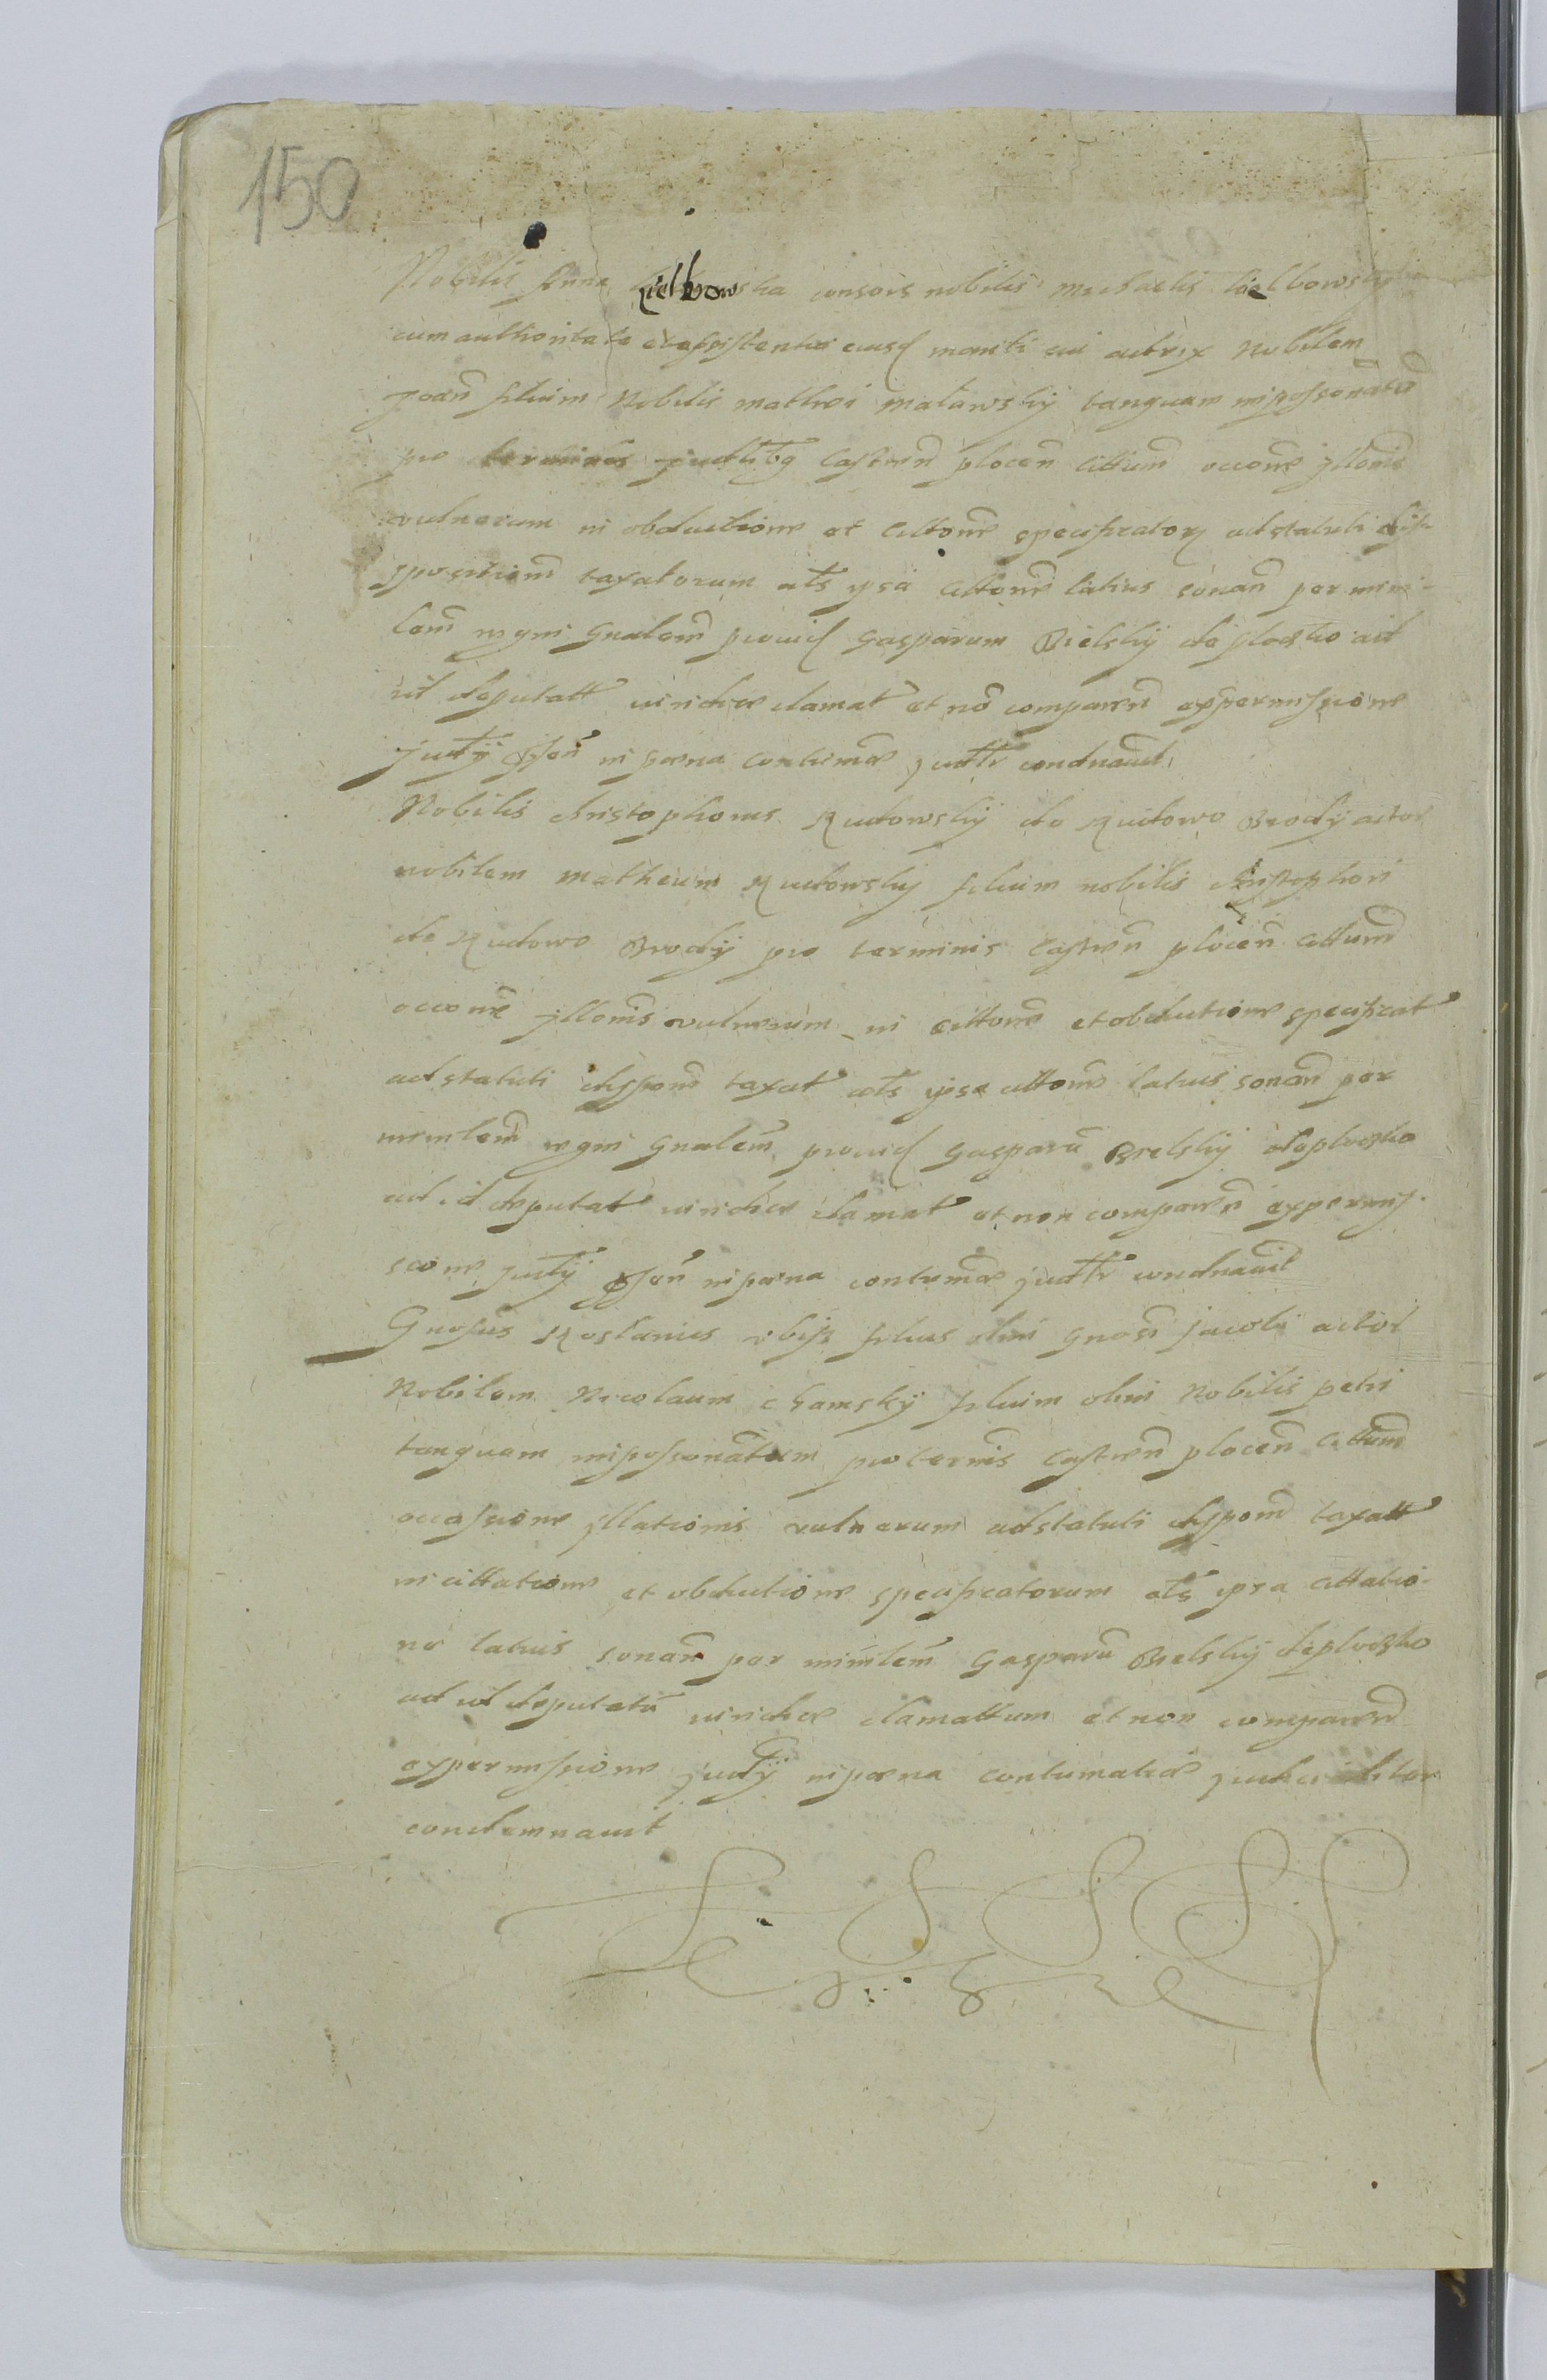 150
Nobilis Anna Kielbowska consors nobilis Michaelis Kielbowsky
cum authoritate et assistentia eiusd mariti sui actrix Nobilem
Joañ filium Nobilis Mathei tanquam impossonatũ
pro terminis Castreñ plocen Cittum occone yllonis
vulnerum in obductione et Cittone specificator ad statuti dis-
spositionem taxatorum ats ypsa Cittone latius sonañ per mini-
lem regni Gnalem prouid Gasparum Bielsky de plocko ad
id deputatt iuridice clamat et nõ compareñ ex permissione
in pæna contumã judtr condnauit
Nobilis christophorus Rudowsky de Rudowo Brody actor
nobilem Matheum Rudowsky filium nobilis christophori
de Rudowo Brody pro terminis Castreñ plocen Cittum
occone yllonis vulnerum in cittone et obductione specificat
ad statuti disspone taxat ats ypsa cittone latius sonañ per
minlem regni Gnalem prouid Gasparũ Bielsky de plocko
ad id deputat iuridice clamat et non compareñ ex permis-
sione in pæna contumã judtr condnauit
Gnosus filius olim Gnosi Jacobi actor
Nobilem Nicolaum chamsky filium olim Nobilis petri
tanquam impossonatum pro termis Castreñ plocen Cittum
occassione yllationis vulnerum ad statuti disspone taxatt
in cittatione et obductione specificatorum ats ypsa Cittatio-
ne latius sonañ per minlem Gasparũ Bielsky de plocko
ad id deputatũ iuridice clamattum et non compareñ
ex permissione in pæna contumatiæ judicialiter
condemnauit